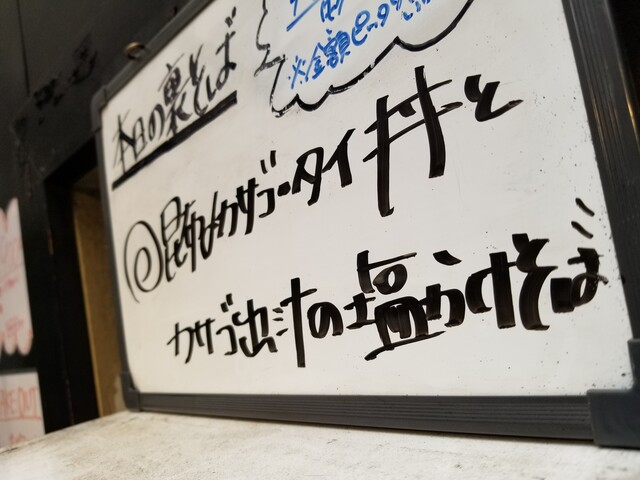 ※金額ピッタリ
本日の裏そば
◎昆布〆カサゴ・タイ丼と
カサゴ出汁の塩かけそば